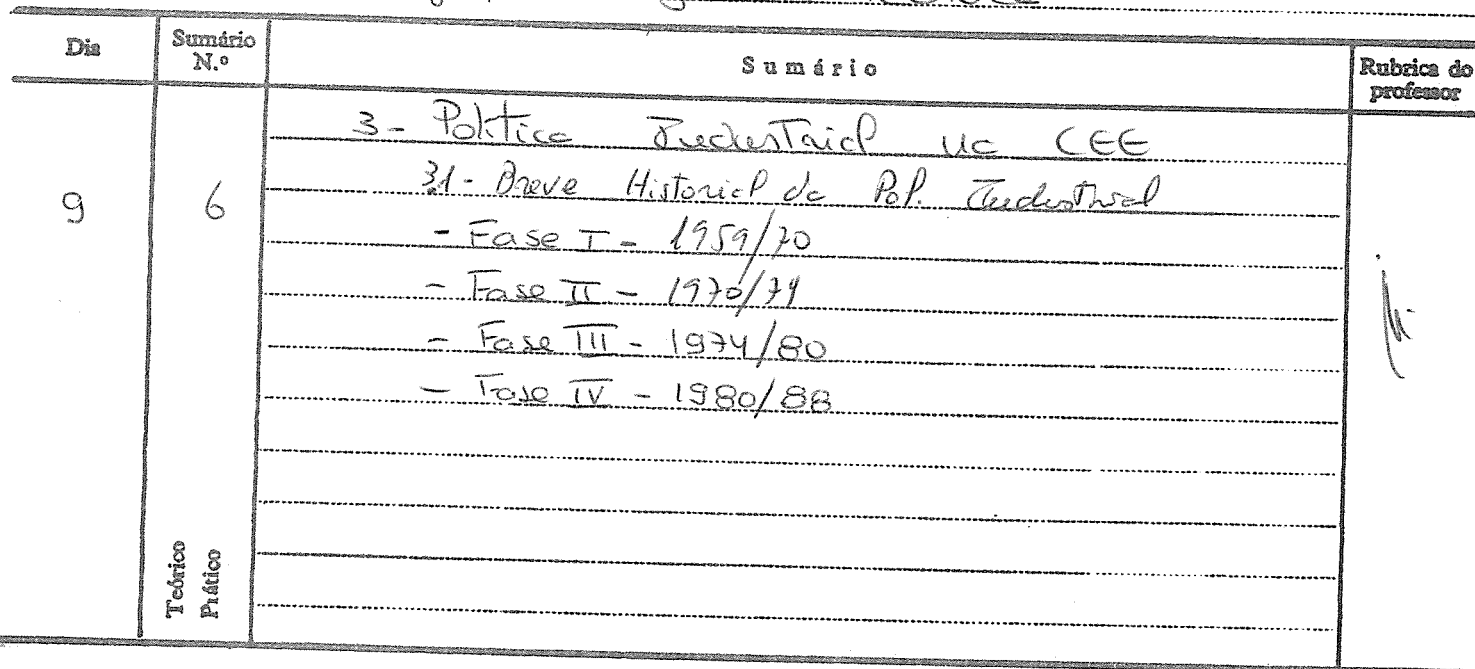 Dia
Sumário N.º
Sumário
Rubrica do professor
9
6
3 - Política Industrial na CEE
3.1 - Breve Historial da Pol. Industrial
- Fase I - 1959/70
- Fase II - 1970/74
- Fase III - 1974/80
- Fase IV - 1980/88
Teórico
Prático